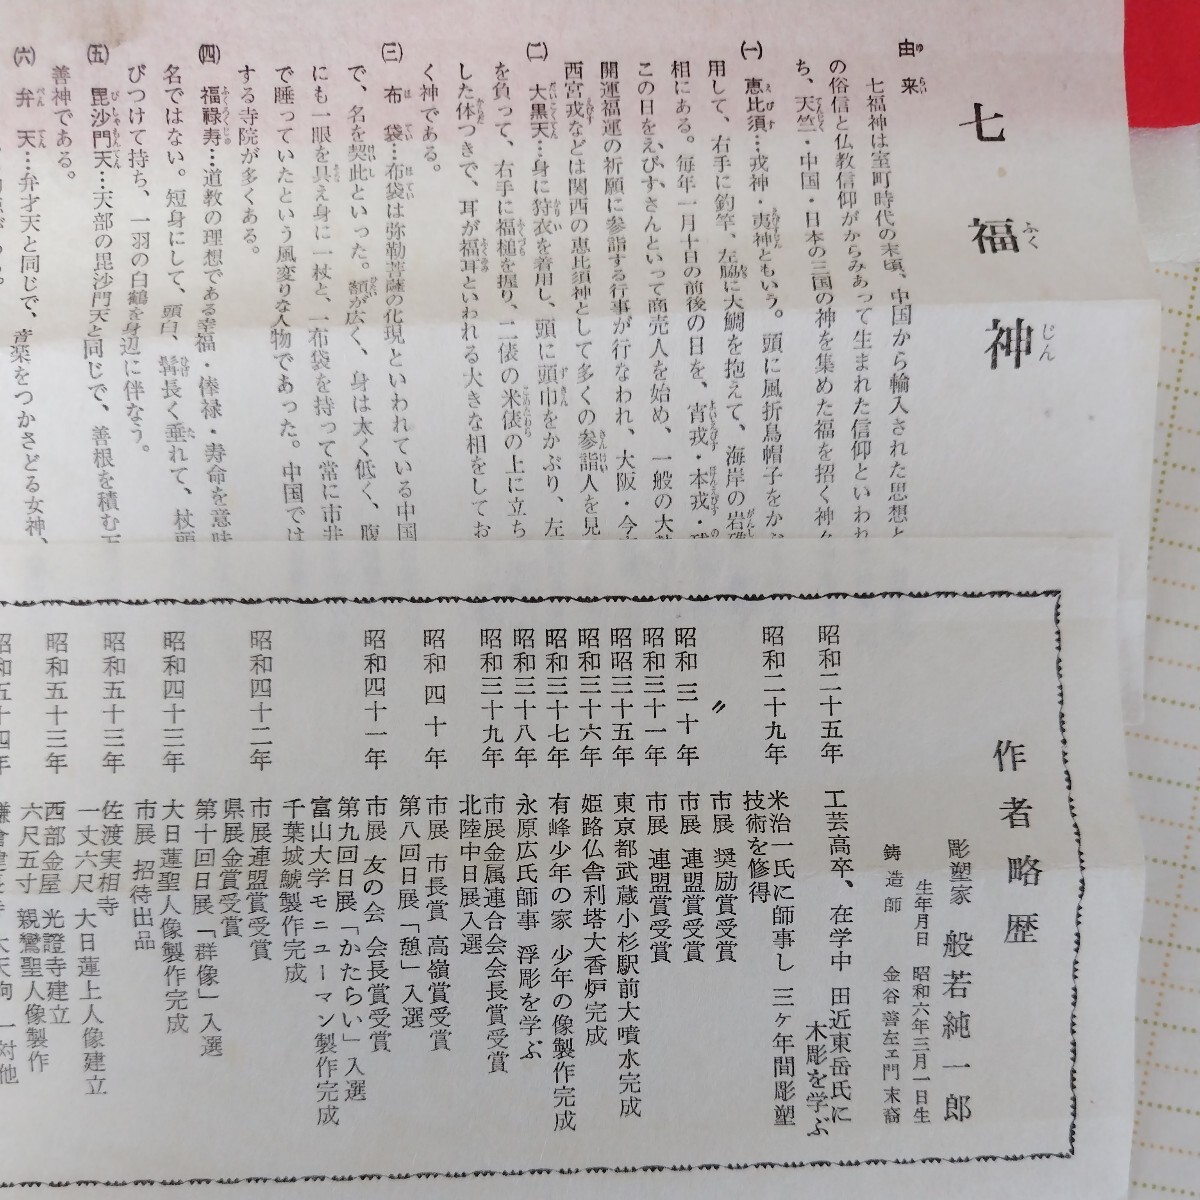 七福神
ふくじん
由来
七福神は室町時代の末頃、中国から輸入された思想と
の俗信と仏教信仰がからみあって生まれた信仰といわれ
ち、天竺・中国・日本の三国の神を集めた福を招く神々
㈠ 恵比須…戎神・夷神ともいう。頭に風折烏帽子をかぶ
用して、右手に釣竿、左脇に大鯛を抱えて、海岸の岩礁
相にある。毎年一月十日の前後の日を、宵戎・本戎・残
この日をえびすさんといって商売人を始め、一般の大
開運福運の祈願に参詣する行事が行なわれ、大阪・今
西宮戎などは関西の恵比須神として多くの参詣人を見
㈡ 大黒天…身に狩衣を着用し、頭に頭巾をかぶり、左
を負って、右手に福槌を握り、二俵の米俵の上に立ち
した体つきで、耳が福耳といわれる大きな相をしてお
く神である。
㈢ 布袋…布袋は弥勒菩薩の化現といわれている中国
で、名を契此といった。額が広く、身は太く低く、腹
にも一眼を具え身に一杖と、一布袋を持って常に市井
で睡っていたという風変りな人物であった。中国では
する寺院が多くある。
㈣ 福禄寿…道教の理想である幸福・俸禄・寿命を意味
名ではない。短身にして、頭白、髯長く垂れて、杖頭
びつけて持ち、一羽の白鶴を身辺に伴なう。
㈤ 毘沙門天…天部の毘沙門天と同じで、善根を積む
善神である。
㈥ 弁天…弁才天と同じで、音楽をつかさどる女神、
作者略歴
彫塑家 般若純一郎
生年月日 昭和六年三月一日生
鋳造師 金谷善左ヱ門末裔
昭和二十五年 工芸高卒、在学中 田近東岳氏に
木彫を学ぶ
昭和二十九年 米治一氏に師事し 三ヶ年間彫塑
技術を修得
〃 市展 奨励賞受賞
昭和三十年 市展 連盟賞受賞
昭和三十一年 市展 連盟賞受賞
昭昭三十五年 東京都武蔵小杉駅前大噴水完成
昭和三十六年 姫路仏舎利塔大香炉完成
昭和三十七年 有峰少年の家 少年の像製作完成
昭和三十八年 永原広氏師事 浮彫を学ぶ
昭和三十九年 市展金属連合会会長賞受賞
北陸中日展入選
昭和四十年 市展 市長賞 高嶺賞受賞
第八回日展「憩」入選
昭和四十一年 市展 友の会 会長賞受賞
第九回日展「かたらい」入選
富山大学モニューマン製作完成
千葉城鯱製作完成
昭和四十二年 市展連盟賞受賞
県展金賞受賞
第十回日展「群像」入選
昭和四十三年 大日蓮聖人像製作完成
市展 招待出品
昭和五十三年 佐渡実相寺
一丈六尺 大日蓮上人像建立
昭和五十三年 西部金屋 光證寺建立
六尺五寸 親鸞聖人像製作
昭和五十四年 鎌倉建長寺 大天狗 一対他